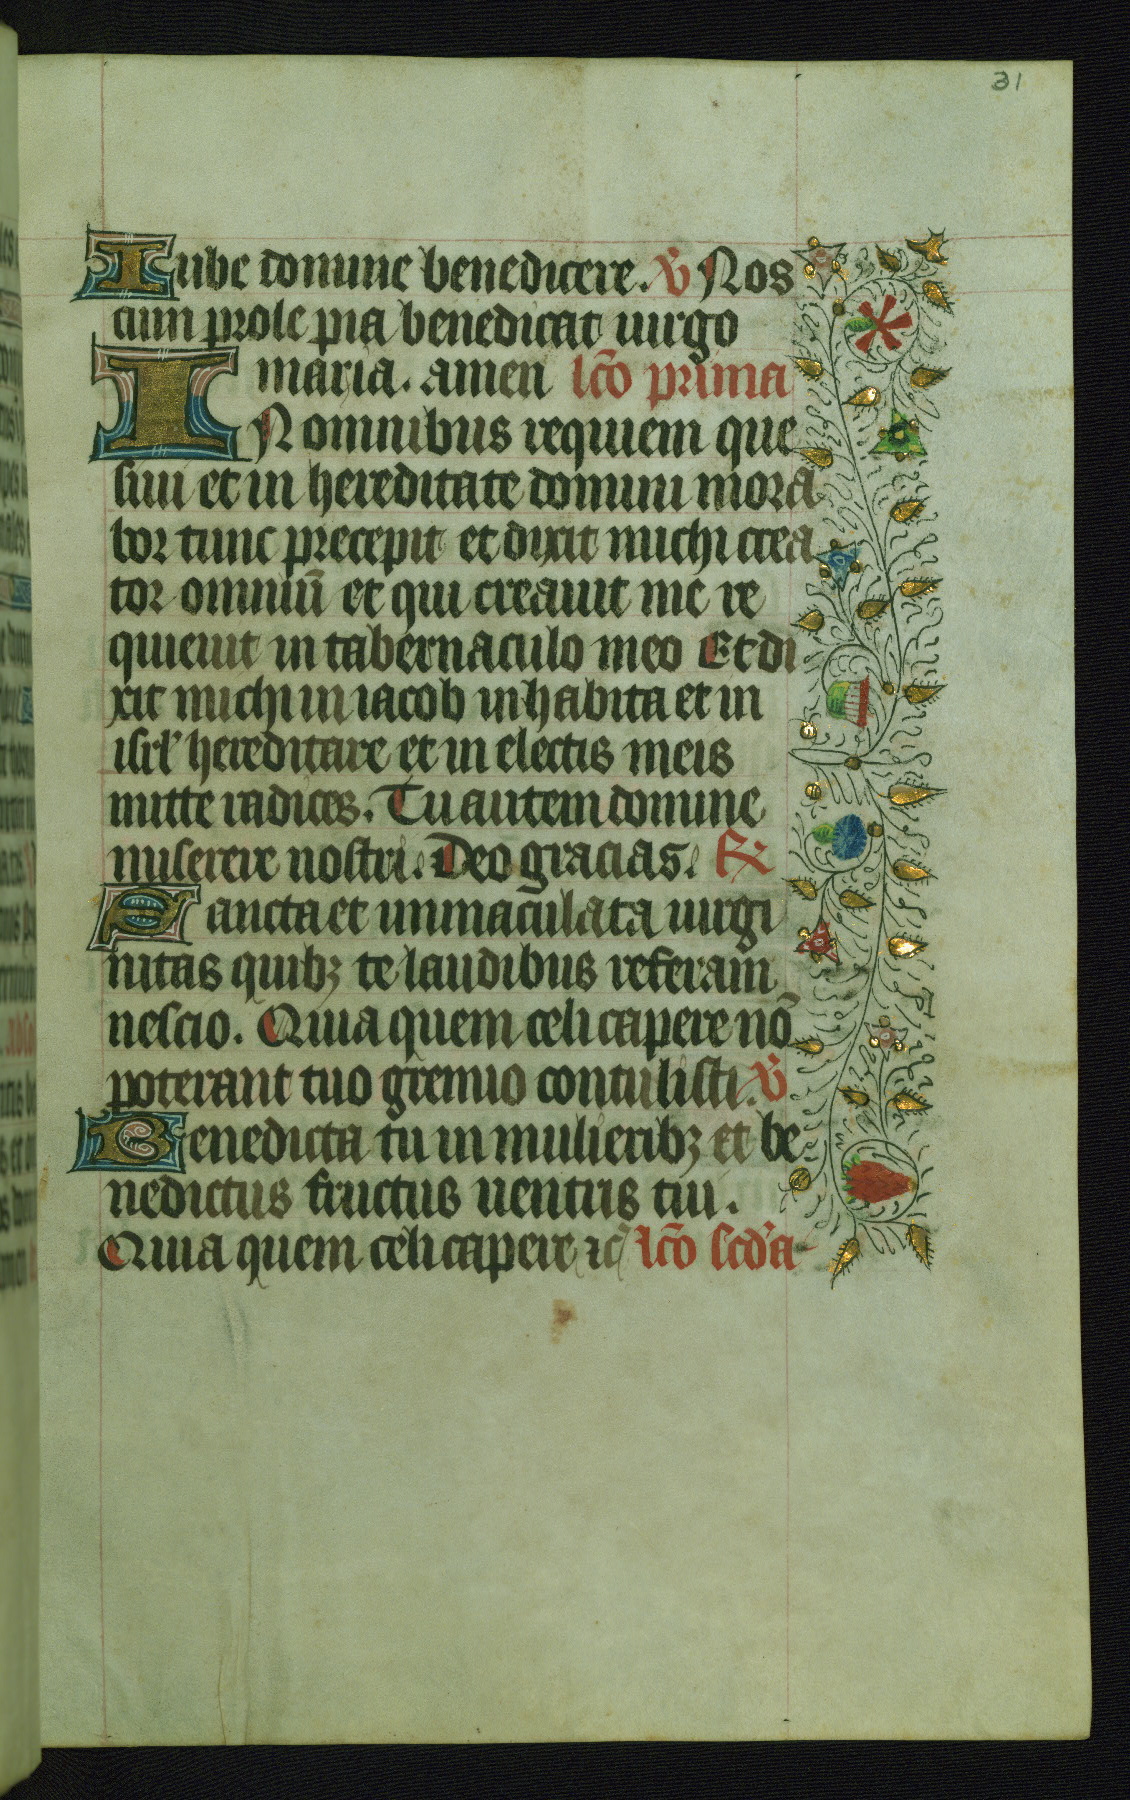 31
Iube domine benedicere. V Nos
cum prole pia benedicat uirgo
maria. amen lc̄o prima
IN omnibus requiem que
siui et in hereditate domini mora
bor tunc precepit et dixit michi crea
tor omniū et qui creauit me re
quieuit in tabernaculo meo Et di
xit michi in iacob inhabita et in
isrl' hereditare et in electis meis
mitte radices. Tu autem domine
miserere nostri. Deo gracias. ℟
Sancta et immaculata uirgi
nitas quibꝫ te laudibus referam
nescio. Quia quem celi capere nō
poterant tuo gremio contulisti. V
Benedicta tu in mulieribꝫ et be
nedictus fructus uentris tui.
Quia quem celi capere ⁊c̄ lc̄o scd'a